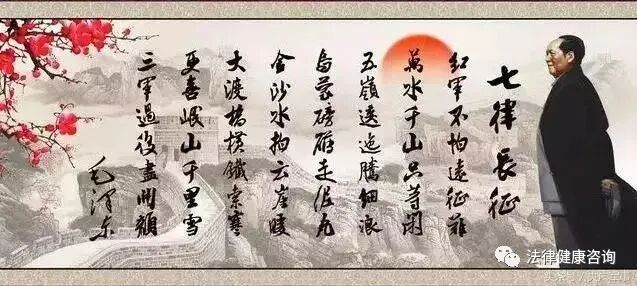 七律长征
红军不怕远征难
萬水千山只等闲
五嶺逶迤騰细浪
烏蒙磅礴走泥丸
金沙水拍云崖暖
大渡橋横鐵索寒
更喜岷山千里雪
三军過後盡開颜
毛泽东
法律健康咨询